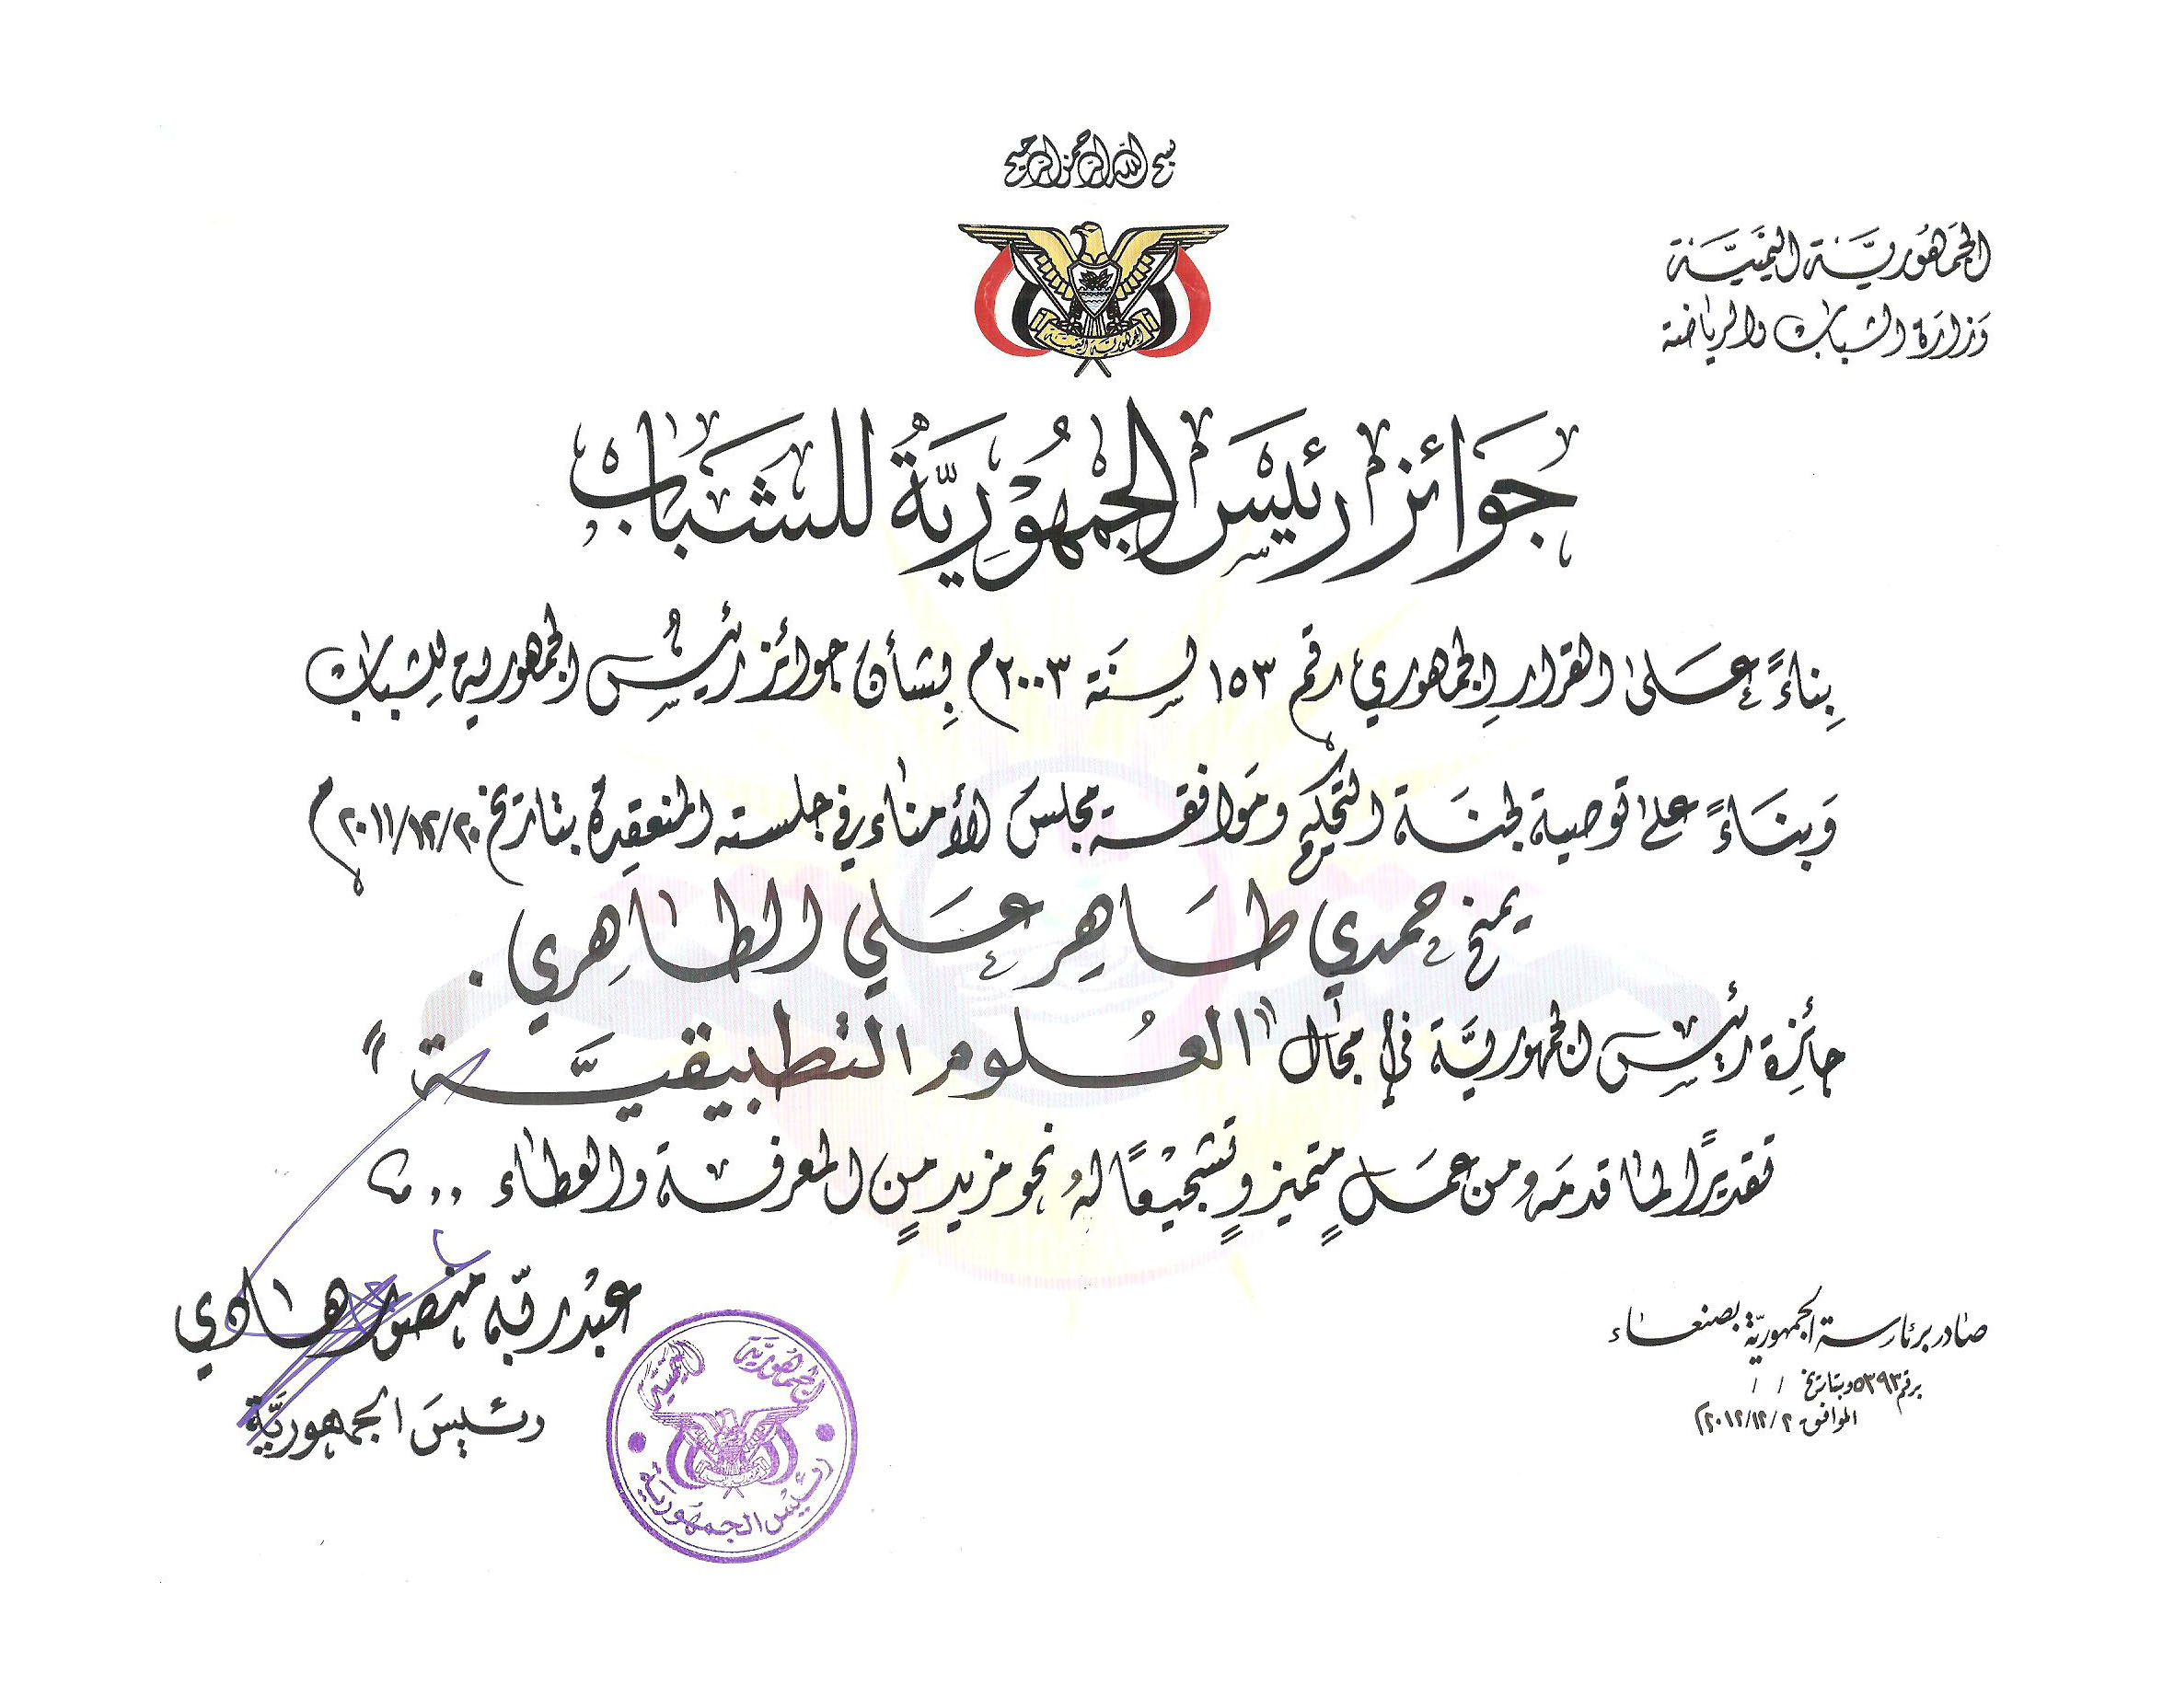 بسم الله الرحمن الرحيم
الجمهورية اليمنية
وزارة الشباب والرياضة
الجمهورية اليمنية
جوائز رئيس الجمهورية للشباب
بناءً على القرار الجمهوري رقم ١٥٣ لسنة ٢٠٠٣م بشأن جوائز رئيس الجمهورية للشباب
وبناءً على توصية لجنة التحكيم وموافقة مجلس الأمناء في جلسته المنعقدة بتاريخ ٢٠١١/١٢/٢٠م
يمنح حمدي طاهر علي الطاهري .
جائزة رئيس الجمهورية في مجال "العلوم التطبيقية"
تقديرًا لما قدمه من عملٍ متميزٍ وتشجيعًا له نحو مزيدٍ من المعرفة والعطاء ..
عبدربه منصور هادي
رئيس الجمهورية
الجمهورية اليمنية
رئيس الجمهورية
صادر برئاسة الجمهورية بصنعاء
برقم ٥٣٩٣ وبتاريخ / /
الموافق ٢٠١٢/١٢/٢م